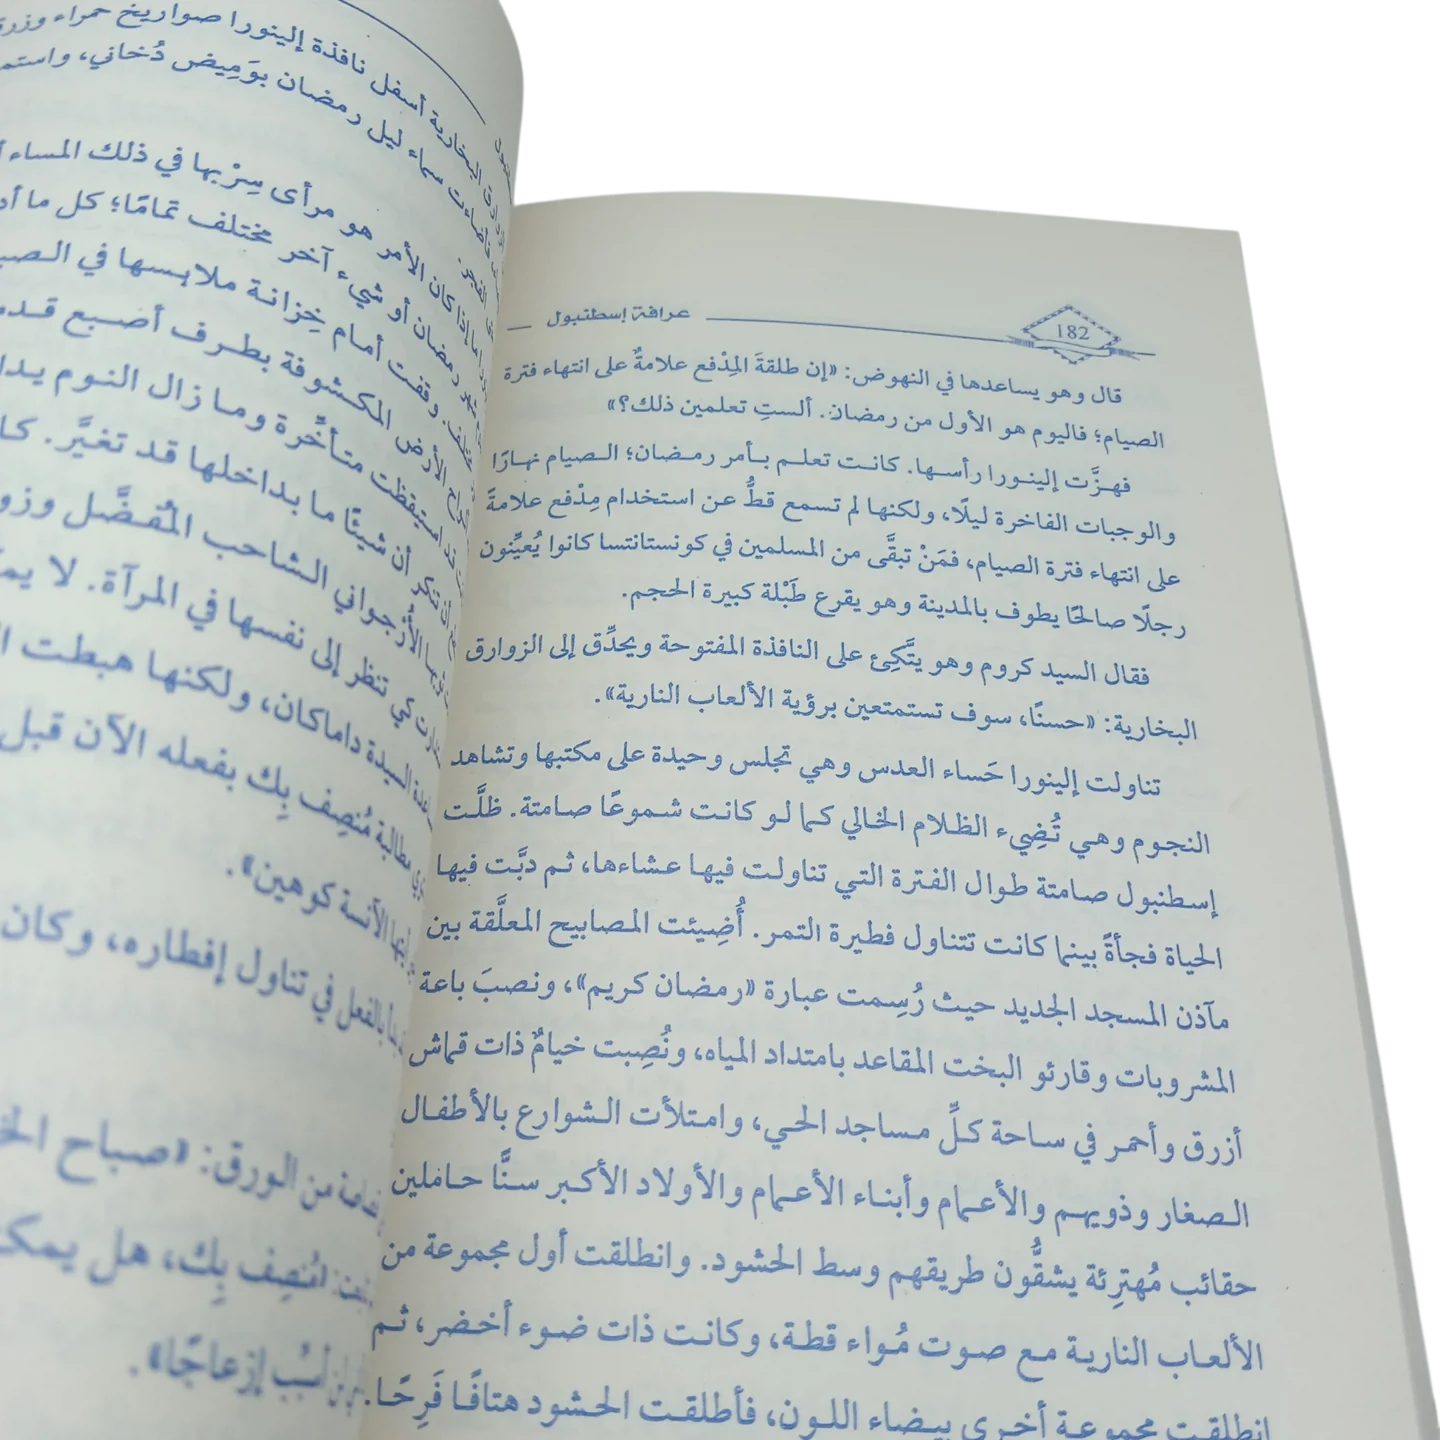 182
عرافة إسطنبول
قال وهو يساعدها في النهوض: «إن طلقةَ المِدْفع علامةٌ على انتهاء فترة
الصيام؛ فاليوم هو الأول من رمضان. ألستِ تعلمين ذلك؟»
فهزَّت إلينورا رأسها. كانت تعلم بأمر رمضان؛ الصيام نهارًا
والوجبات الفاخرة ليلًا، ولكنها لم تسمع قطُّ عن استخدام مِدْفع علامةً
على انتهاء فترة الصيام، فمَنْ تبقَّى من المسلمين في كونستانتسا كانوا يُعيِّنون
رجلًا صالحًا يطوف بالمدينة وهو يقرع طَبْلة كبيرة الحجم.
فقال السيد كروم وهو يتَّكِئ على النافذة المفتوحة ويحدِّق إلى الزوارق
البخارية: «حسنًا، سوف تستمتعين برؤية الألعاب النارية».
تناولت إلينورا حَساء العدس وهي تجلس وحيدة على مكتبها وتشاهد
النجوم وهي تُضِيء الظلام الخالي كما لو كانت شموعًا صامتة. ظلَّت
إسطنبول صامتة طوال الفترة التي تناولت فيها عشاءها، ثم دبَّت فيها
الحياة فجأةً بينما كانت تتناول فطيرة التمر. أُضِيئت المصابيح المعلَّقة بين
مآذن المسجد الجديد حيث رُسِمت عبارة «رمضان كريم»، ونصبَ باعة
المشروبات وقارئو البخت المقاعد بامتداد المياه، ونُصِبت خيامٌ ذات قماش
أزرق وأحمر في ساحة كلِّ مساجد الحي، وامتلأت الشوارع بالأطفال
الصغار وذويهم والأعمام وأبناء الأعمام والأولاد الأكبر سنًّا حاملين
حقائب مُهترِئة يشقُّون طريقهم وسط الحشود. وانطلقت أول مجموعة من
الألعاب النارية مع صوت مُواء قطة، وكانت ذات ضوء أخضر، ثم
انطلقت مجموعة أخرى بيضاء اللون، فأطلقت الحشود هتافًا فَرِحًا.
البخارية أسفل نافذة إلينورا صواريخ حمراء
سماء ليل رمضان بوَمِيض دُخاني،
الفجر.
إذا كان الأمر هو مرأى سِرْبها في ذلك المساء
رمضان أو شيء آخر مختلف تمامًا؛ كل ما
وقفت أمام خِزانة ملابسها في
الأرض المكشوفة بطرف أصبع
استيقظت متأخِّرة وما زال النوم
تنكر أن شيئًا ما بداخلها قد تغيَّر.
الأُرْجواني الشاحب المُفضَّل
كي تنظر إلى نفسها في المرآة. لا
السيدة داماكان، ولكنها هبطت
مطالبة مُنصِف بِك بفعله الآن قبل
الآنسة كوهين».
بالفعل في تناول إفطاره، وكان
من الورق: «صباح
مُنصِف بِك، هل
أُسبِّب إزعاجًا».